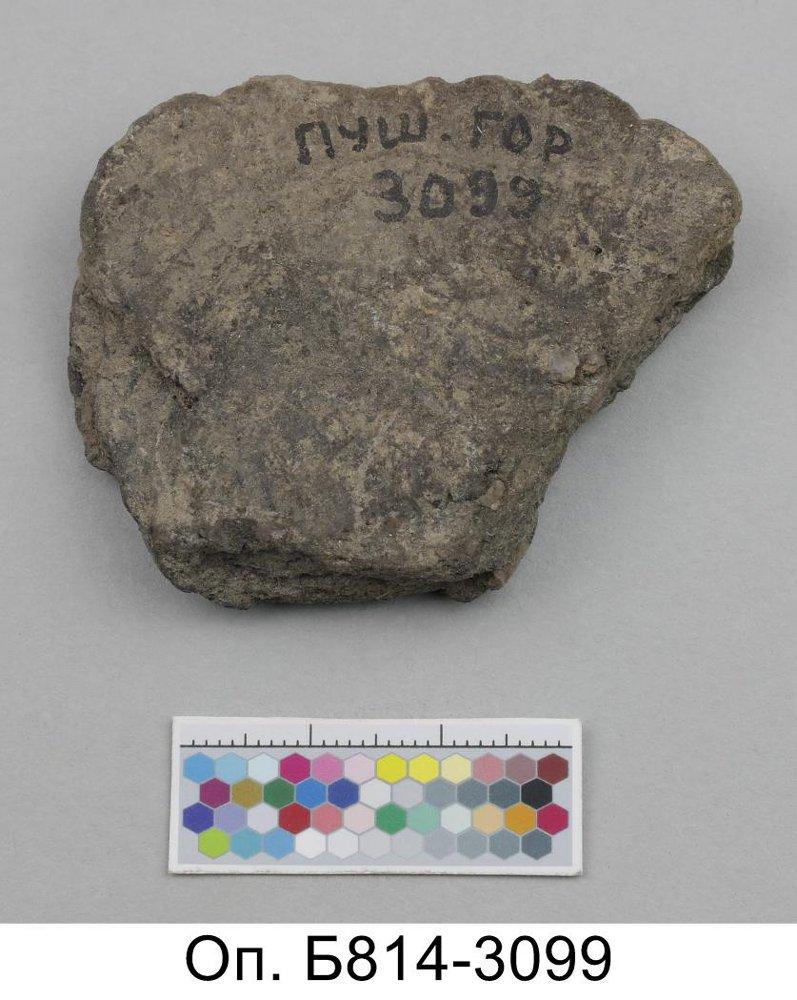 ПУШ. ГОР
3099
Оп. Б814-3099